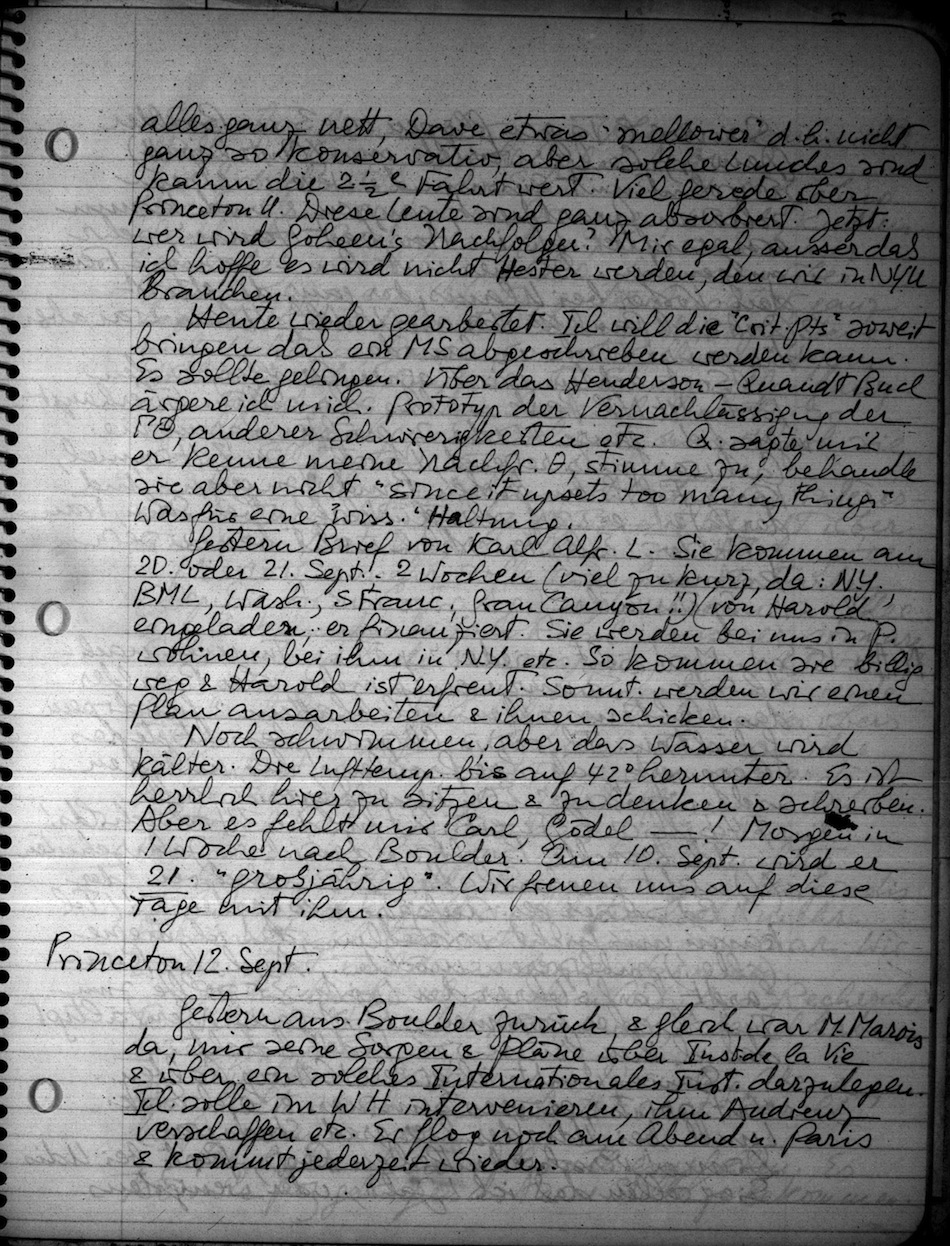 alles ganz nett, Dave etwas "mellower" d.h. nicht
ganz so konservativ, aber solche Lunches sind
kaum die 2½ Fahrt wert. Viel gerede über
Princeton U. Diese Leute sind ganz absorbiert. Jetzt:
wer wird Goheen's Nachfolger? Mir egal, ausser das
ich hoffe es wird nicht Hester werden, den wir in NYU
brauchen.
Heute wieder gearbeitet. Ich will die "Crit. Pts" soweit
bringen das ein MS abgeschrieben werden kann.
Es sollte gelingen. Über das Henderson – Quandt Buch
ärgere ich mich. Prototyp der Vernachlässigung der
anderer Schwierigkeiten etc. Q. sagte mir
er kenne meine Nachfr. θ, stimme zu, behandle
sie aber nicht "since it upsets too many things"
Was für eine "wiss." Haltung.
Gestern Brief von Karl Alfr. L. Sie kommen am
20. oder 21. Sept. 2 Wochen (viel zu kurz, da: N.Y.,
BML, Wash., S Franc, Gran Canyon!!) von Harold
eingeladen, er finanziert. Sie werden bei uns in P.
wohnen, bei ihm in N.Y. etc. So kommen sie billig
weg & Harold ist erfreut. Sonnt. werden wir einen
Plan ausarbeiten & ihnen schicken.
Noch schwimmen, aber das Wasser wird
kälter. Die Lufttemp. bis auf 42° herunter. Es ist
herrlich hier zu sitzen & zu denken & schreiben.
Aber es fehlt mir Carl, Gödel — ! Morgen in
1 Woche nach Boulder. Am 10. Sept. wird er
21. "großjährig". Wir freuen uns auf diese
Tage mit ihm.
Princeton 12. Sept.
Gestern aus Boulder zurück, & gleich war M. Marois
da, mir seine Sorgen & Pläne über Inst. de la Vie
& über ein solches Internationales Inst. darzulegen.
Ich solle im WH intervenieren, ihm Audienz
verschaffen etc. Er flog noch am Abend n. Paris
& kommt jederzeit wieder.